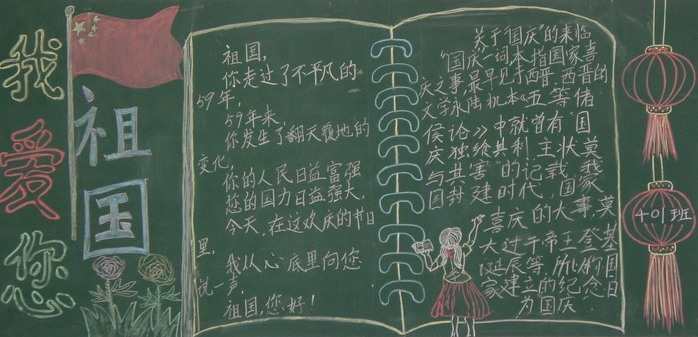 我爱您
祖国
祖国,
你走过了不平凡的
59年,
59年来,
你发生了翻天覆地的
变化,
你的人民日益富强
您的国力日益强大,
今天,在这欢庆的节日
里,
我从心底里向您
说一声,
祖国,您好!
关于"国庆"的来临
"国庆一词本指国家喜
庆之事,最早见于西晋.西晋的
文学永陆机本《五等诸
侯论》中就曾有"国
庆独给其利,主状莫
与其害"的记载,
国封建时代,国家
喜庆的大事,莫
大过于帝王登基
诞辰等,国
家建立的纪念日
为国庆
401班